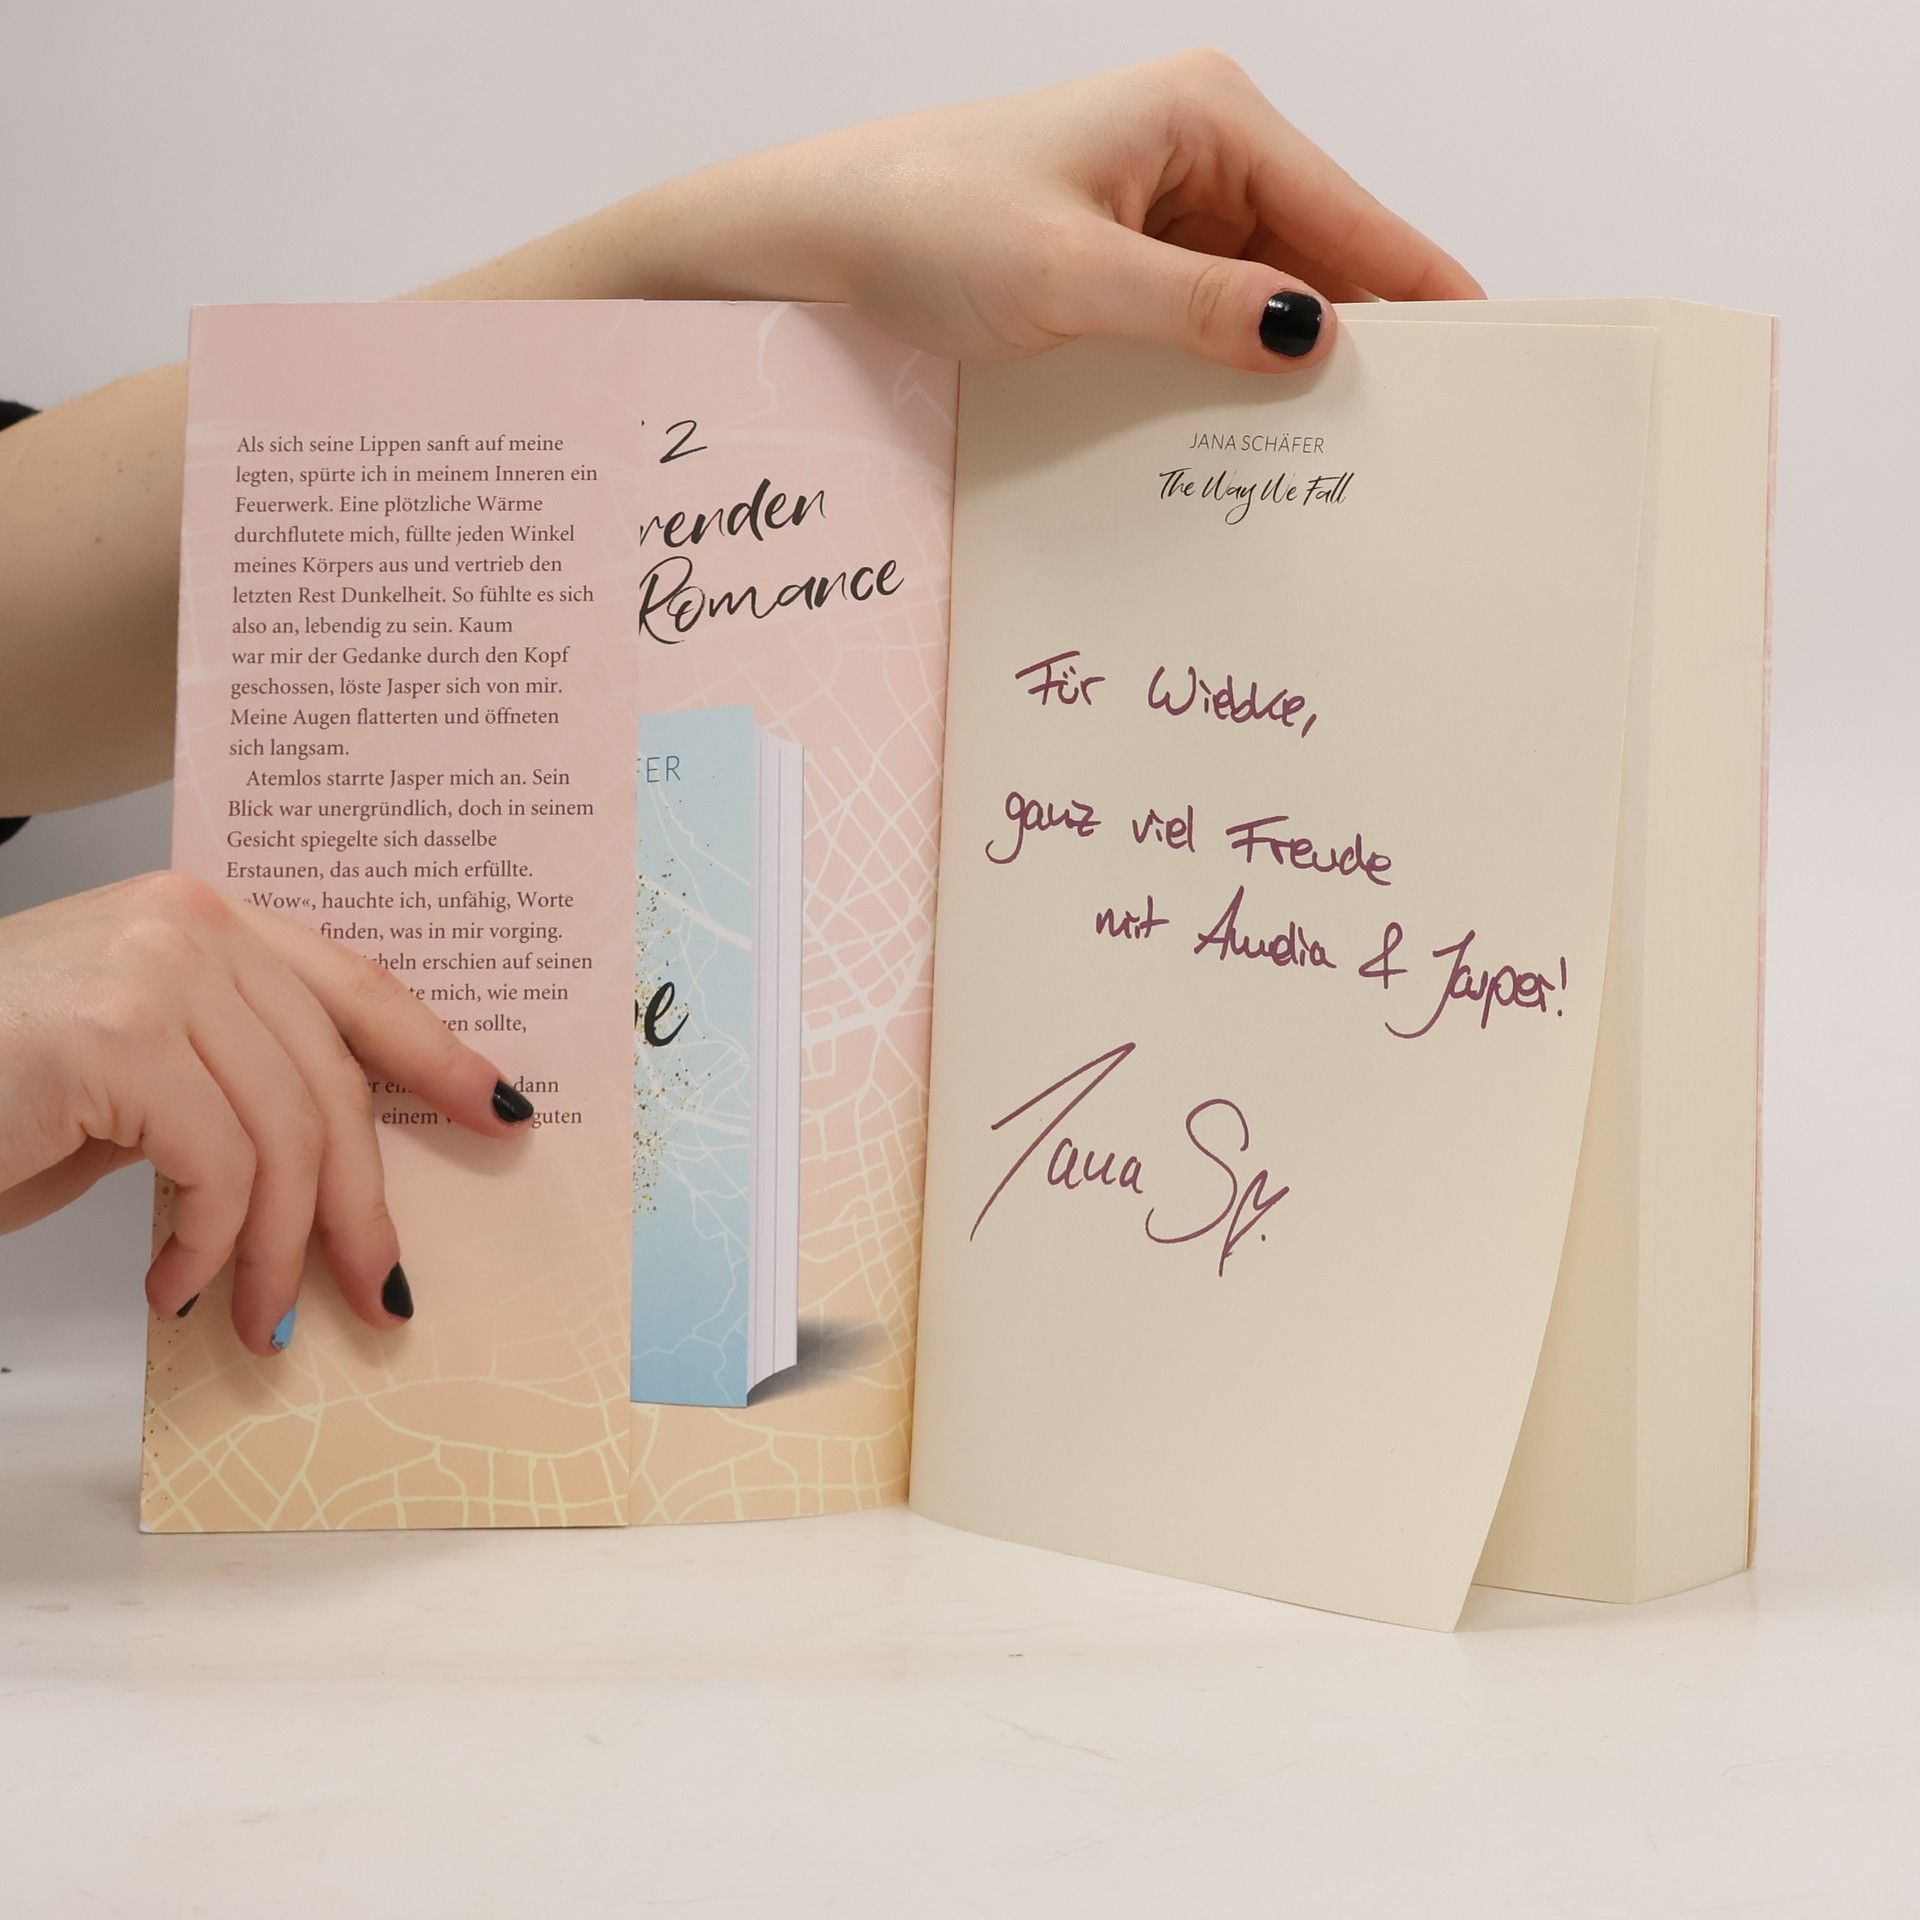 Als sich seine Lippen sanft auf meine
legten, spürte ich in meinem Inneren ein
Feuerwerk. Eine plötzliche Wärme
durchflutete mich, füllte jeden Winkel
meines Körpers aus und vertrieb den
letzten Rest Dunkelheit. So fühlte es sich
also an, lebendig zu sein. Kaum
war mir der Gedanke durch den Kopf
geschossen, löste Jasper sich von mir.
Meine Augen flatterten und öffneten
sich langsam.
Atemlos starrte Jasper mich an. Sein
Blick war unergründlich, doch in seinem
Gesicht spiegelte sich dasselbe
Erstaunen, das auch mich erfüllte.
»Wow«, hauchte ich, unfähig, Worte
finden, was in mir vorging.
cheln erschien auf seinen
te mich, wie mein
gen sollte,
dann
einem guten
2
renden
Romance
FER
e
JANA SCHÄFER
The Way We Fall
Für Wiebke,
ganz viel Freude
mit Amelia & Jasper!
Jana